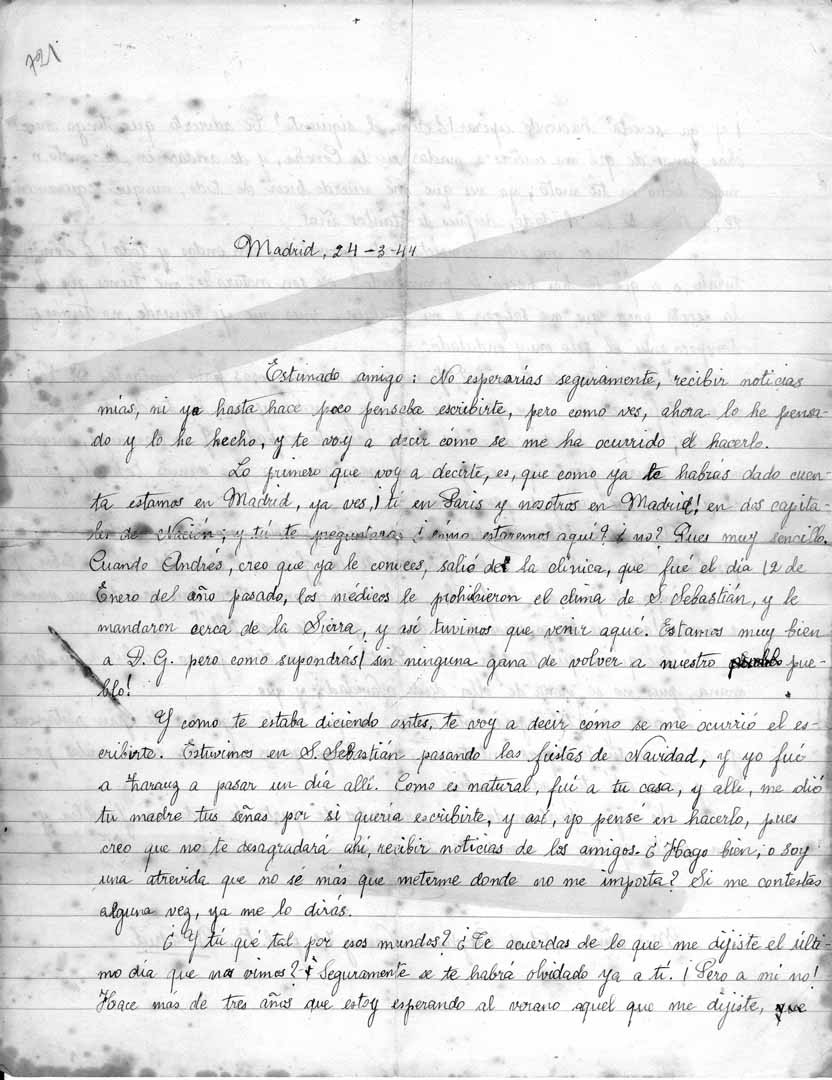 721
Madrid, 24-3-44
Estimado amigo: No esperarías seguramente, recibir noticias
mías, ni yo hasta hace poco pensaba escribirte, pero como ves, ahora lo he pensa-
do y lo he hecho, y te voy a decir cómo se me ha ocurrido el hacerlo.
Lo primero que voy a decirte, es, que como ya te habrás dado cuen-
ta estamos en Madrid, ya ves, ¡tú en Paris y nosotros en Madrid! en dos capita-
les de Nación; y tú te preguntaras ¿cómo estaremos aquí? ¿no? Pues muy sencillo.
Cuando Andrés, creo que ya le conoces, salió de la clínica, que fué el día 12 de
Enero del año pasado, los médicos le prohibieron el clima de S. Sebastián, y le
mandaron cerca de la Sierra, y así tuvimos que venir aquí. Estamos muy bien
a D. G. pero como supondrás ¡sin ninguna gana de volver a nuestro pue-
blo!
Y como te estaba diciendo antes, te voy a decir cómo se me ocurrió el es-
cribirte. Estuvimos en S. Sebastián pasando las fiestas de Navidad, y yo fuí
a Zarauz a pasar un día allí. Como es natural, fuí a tu casa, y allí, me dió
tu madre tus señas por si quería escribirte, y así, yo pensé en hacerlo, pues
creo que no te desagradará ahí, recibir noticias de los amigos. ¿Hago bien, o soy
una atrevida que no se más que meterme donde no me importa? Si me contestas
alguna vez, ya me lo dirás.
¿Y tú qué tal por esos mundos? ¿Te acuerdas de lo que me dijiste el últi-
mo día que nos vimos? Seguramente se te habrá olvidado ya a tí. ¡Pero a mí no!
Hace más de tres años que estoy esperando al verano aquel que me dijiste, que